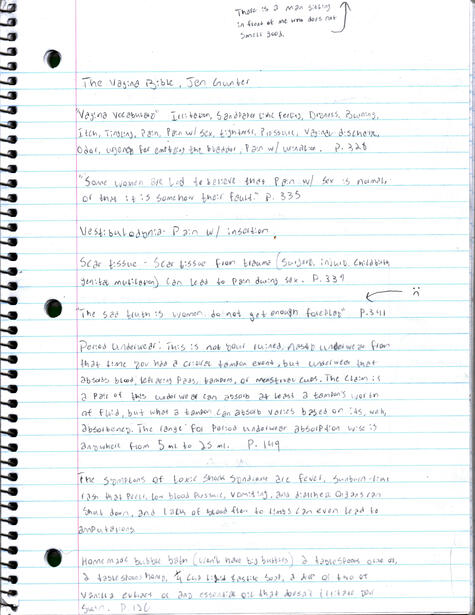 There is a man sitting
in front of me who does not
smell good.
The Vagina Bible, Jen Gunter
"Vagina Vocabulary" Irritation, Sandpaper like feeling, Dryness, Burning,
Itch, Tingling, Pain, Pain w/ sex, tightness, Pressure, vaginal discharge,
Odor, urgency for emptying the bladder, Pain w/ urination. P. 328
"Some women are led to believe that Pain w/ sex is normal
or that it is somehow their fault." P. 335
Vestibulodynia- Pain w/ insertion.
Scar tissue - Scar tissue from trauma (Surgery, injury, childbirth,
genital mutilation) can lead to Pain during sex. P. 339
"The sad truth is women do not get enough foreplay" P. 341
Period underwear: This is not your ruined, nasty underwear from
that time you had a critical tampon event, but underwear that
absorbs blood, replacing Pads, tampons, or menstrual cups. The claim is
a Pair of this underwear can absorb at least a tampon's worth
of fluid, but what a tampon can absorb varies based on its
absorbency. The range for Period underwear absorption wise is
anywhere from 5 ml to 25 ml. P. 149
The symptoms of toxic shock syndrome are fever, sunburn-like
rash that Peels, low blood Pressure, vomiting, and diarrhea. Organs can
shut down, and lack of blood flow to limbs can even lead to
amputations
Homemade bubble bath (won't have big bubbles) 2 tablespoons olive oil,
2 tablespoons honey, 1/4 cup liquid castile soap, a drop or two of
vanilla extract or any essential oil that doesn't irritate your
skin. P. 126